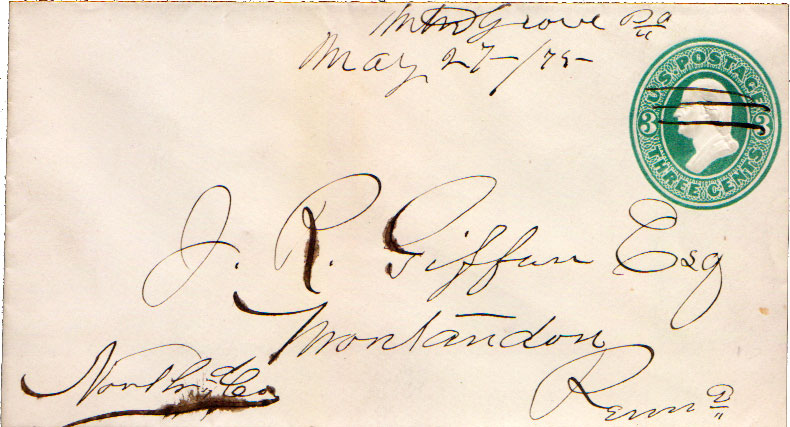 Grove Pa
May 27-/75-
U.S. POSTAGE
3 3
THREE CENTS
J. R. Giffen Esq
Montandon
North'd Co
Penna